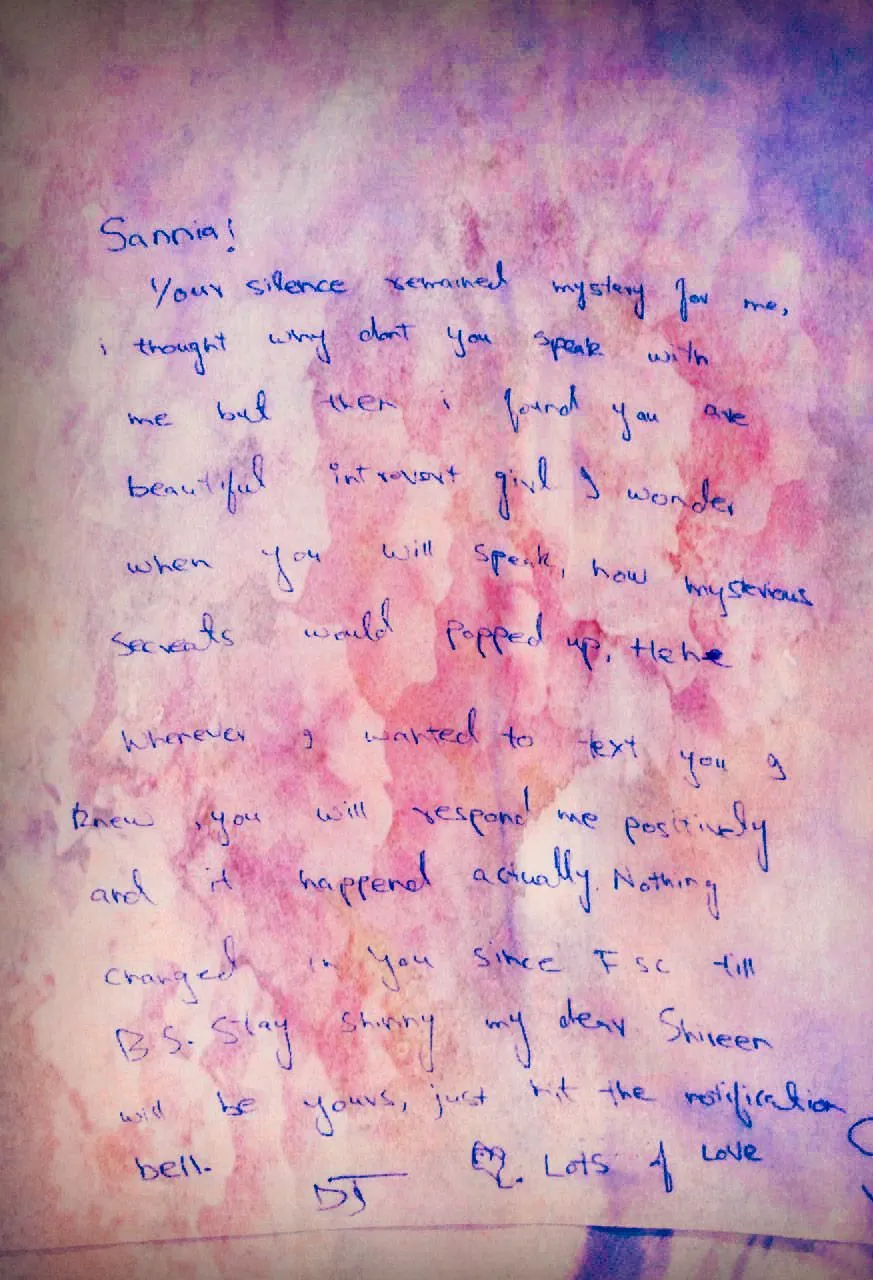 Sannia!
Your silence remained mystery for me,
i thought why dont you speak with
me but then i found you are
beautiful introvert girl I wonder
when you will speak, how mysterious
secreats would popped up, Hehe
Whenever I wanted to text you I
knew, you will respond me positively
and it happend actually. Nothing
changed in you since Fsc till
BS. Stay shinny my dear Shireen
will be yours, just hit the notification
bell.
Lots of Love
DJ